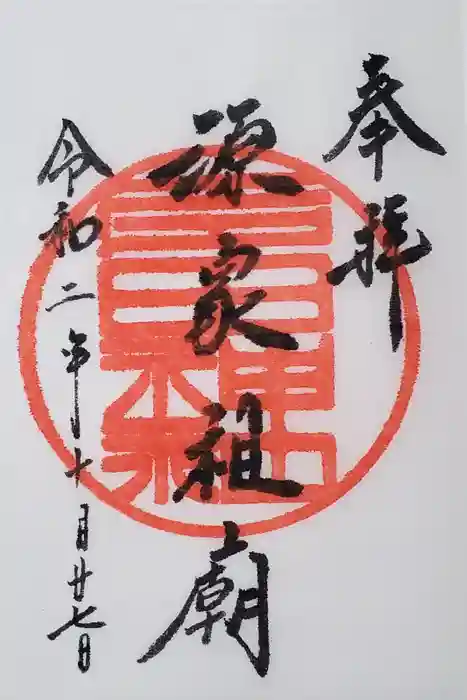 奉拝
源家祖廟
令和二年十月廿七日